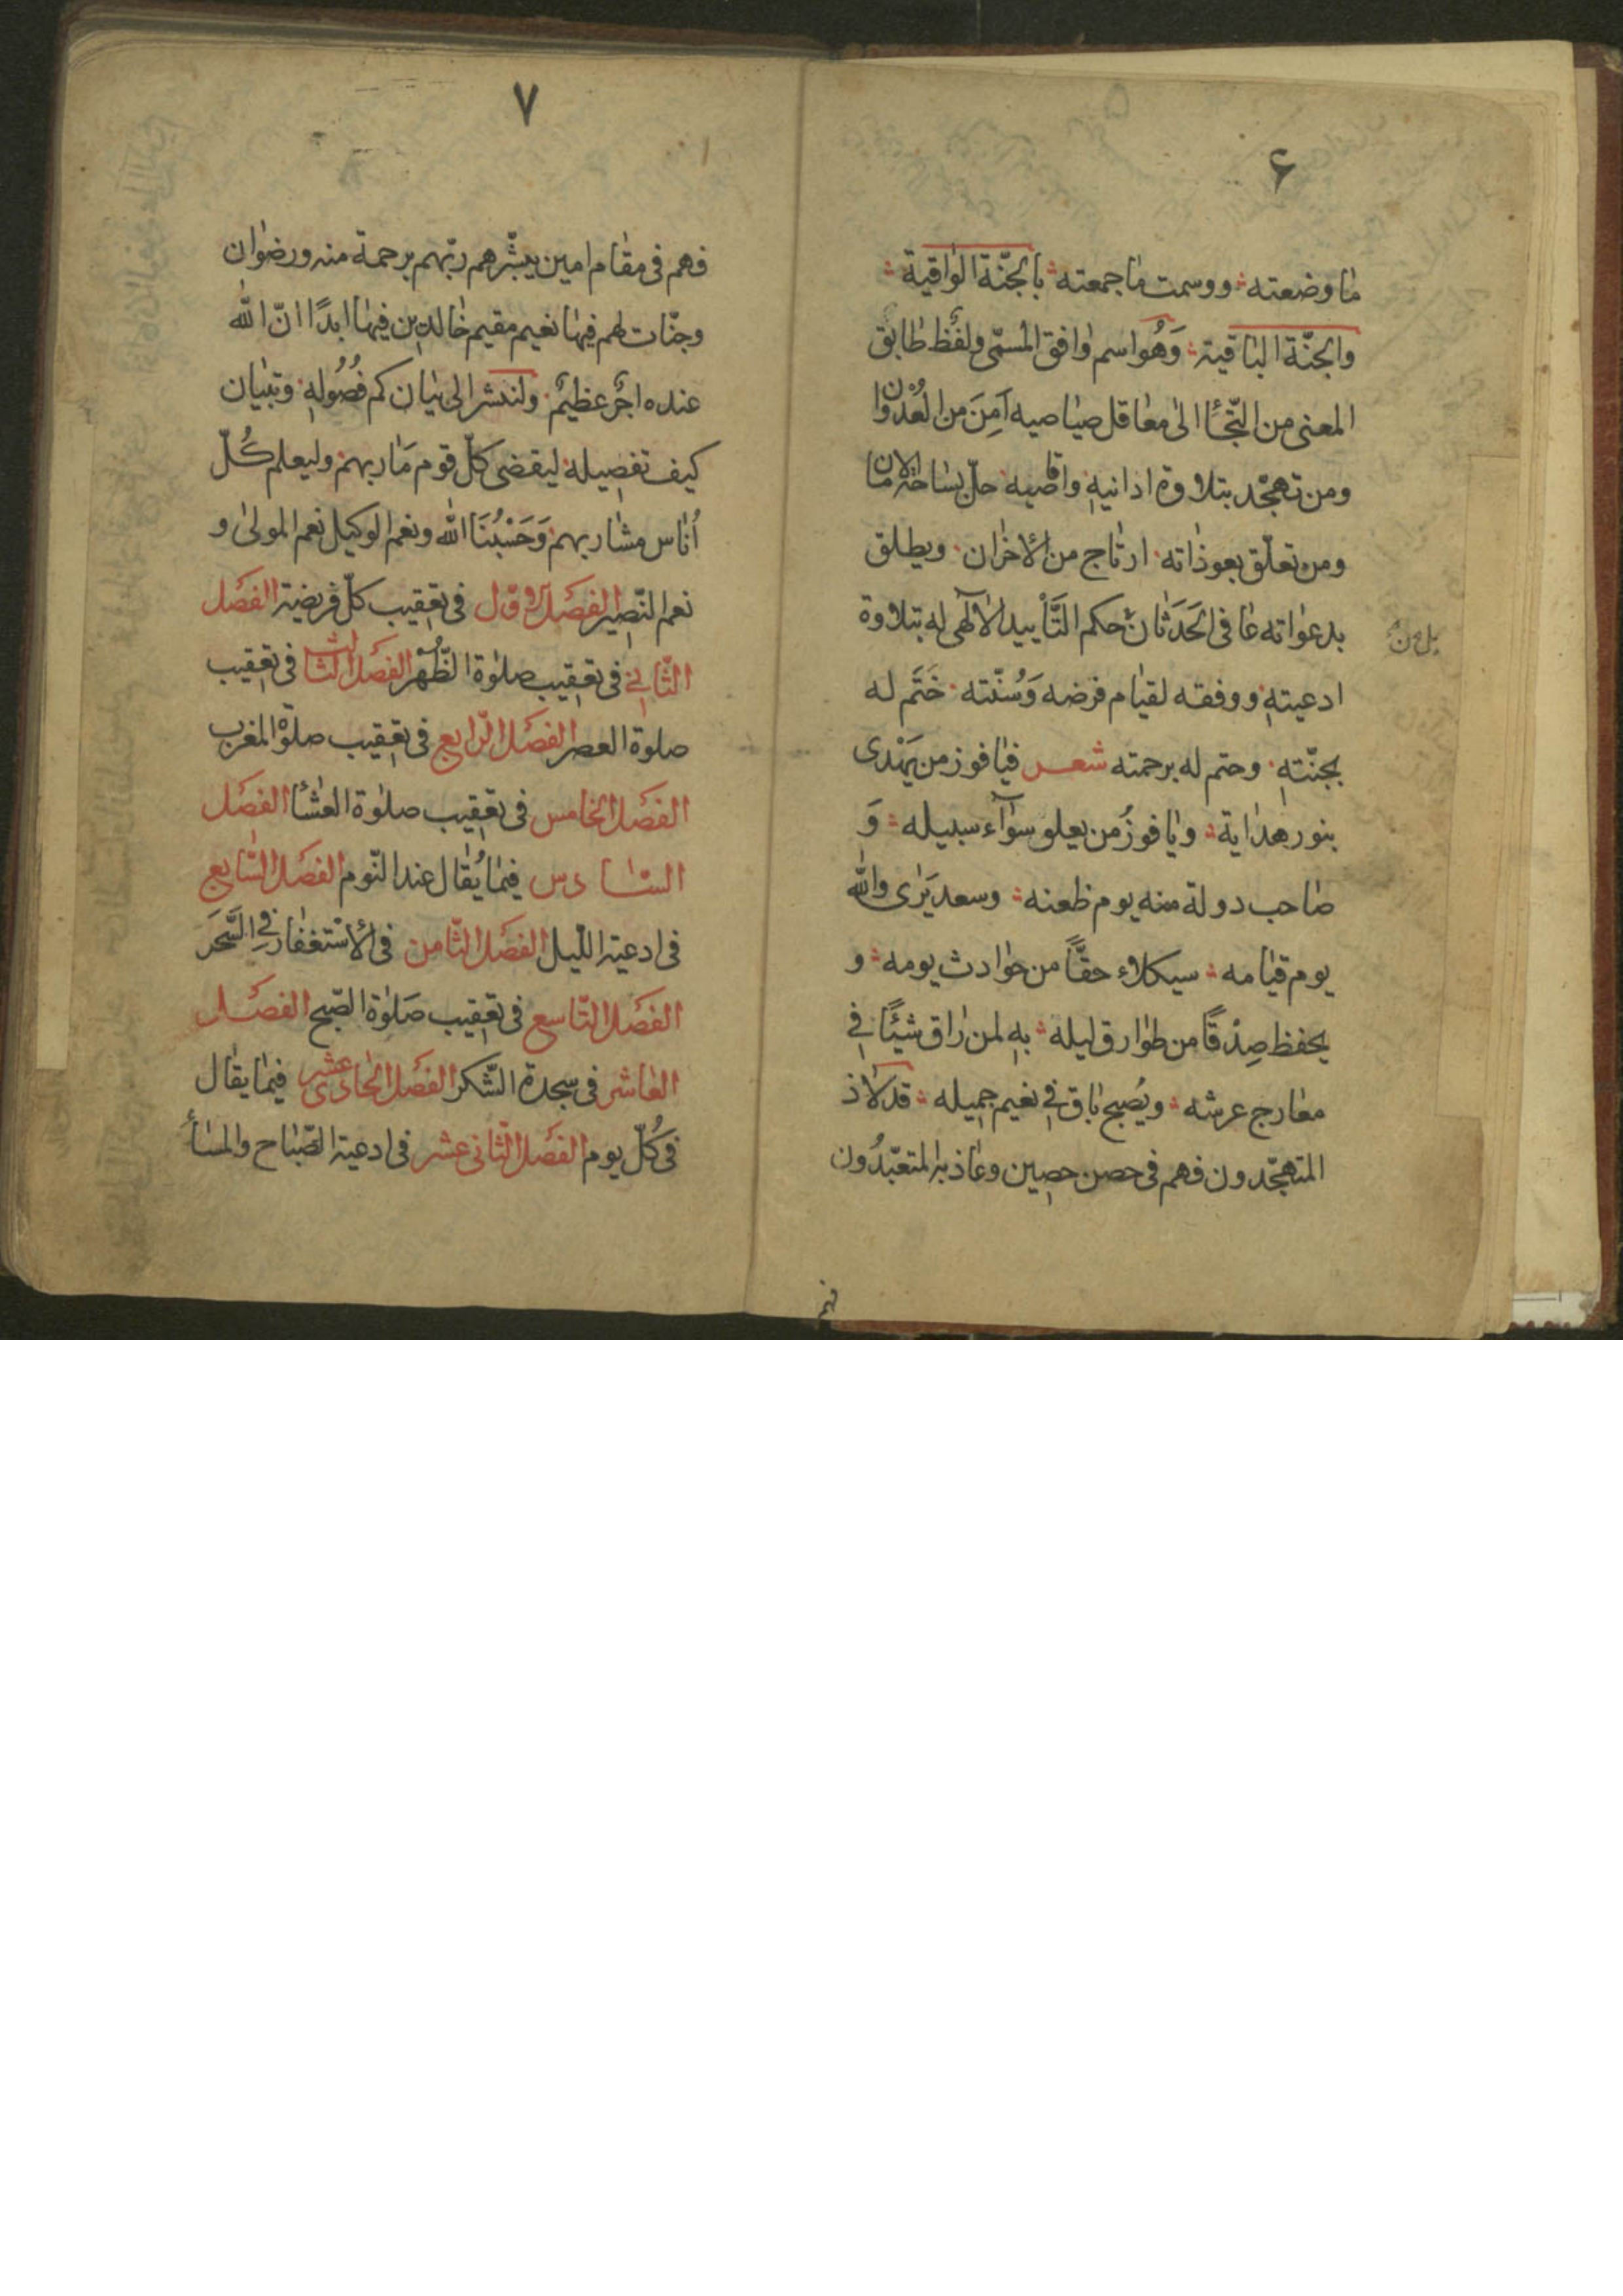 ۶
ما وضعته ووسمت ما جمعته بالجنّة الواقية
والجنّة الباقية وَهُو اسم وافق المسمّى ولفظ طابق
المعنى من التجأ الى معاقل صياصيه آمِنَ من العُدْوان
ومن تهجّد بتلاوة ادانيهِ واقاصيه حلّ بساحته الامان
ومن تعلّق بعوذاته ارتاج من الاحزان ويطلق
بدعواته عافى الحَدَثان حكم التَّأييد الالٓهى له بتلاوة
بل من
ادعيتهِ ووفقه لقيام فرضه وَسُنّته خَتَم له
بجنّتهِ وحتم له برحمته شعر فيا فوز من يَهْدى
بنور هداية ويا فوزُ من يعلو سوآء سبيله وَ
صاحب دولة منه يوم ظعنه وسعد يَرٰى والله
يوم قيامه سيكلاء حقًّا من حوادث يومه و
يحفظ صِدْقًا من طوارق ليله بهِ لمن راق شيئًا فى
معارج عرشه ويُصبح باق فى نعيم جميله قد لاذ
المتهجّدون فهم فى حصن حصين وعاذ به المتعبّدُون
فهم
۷
فهم فى مقام امين يبشّرهم ربّهم برحمة منه ورضوان
وجنّات لهم فيها نعيم مقيم خالدين فيها ابدًا انّ الله
عنده اجرٌ عظيمٌ ولنشر الى بيان كم فُصُولهِ وتبيان
كيف تفصيله ليقضى كلّ قوم مَاربهم وليعلم كُلّ
اُناس مشاربهم وَحَسْبُنَا الله ونعم الوكيل نعم المولىٰ و
نعم النّصير الفصل الاوّل فى تعقيب كلّ فريضة الفصل
الثّانى فى تعقيب صلوٰة الظُّهْر الفصل الثالث فى تعقيب
صلوة العصر الفصل الرّابع فى تعقيب صلوٰة المغرب
الفصل الخامس فى تعقيب صلوٰة العشا الفصل
السّادس فيما يُقال عند النّوم الفصل السّابع
فى ادعية اللّيل الفصل الثّامن فى الاسْتغفار فى السَّحَر
الفصل التّاسع فى تعقيب صَلوٰة الصّبح الفصل
العاشر فى سجدة الشّكر الفصل الحادى عشر فيما يقال
فى كُلّ يوم الفصل الثّانى عشر فى ادعية الصّباح والمسأ